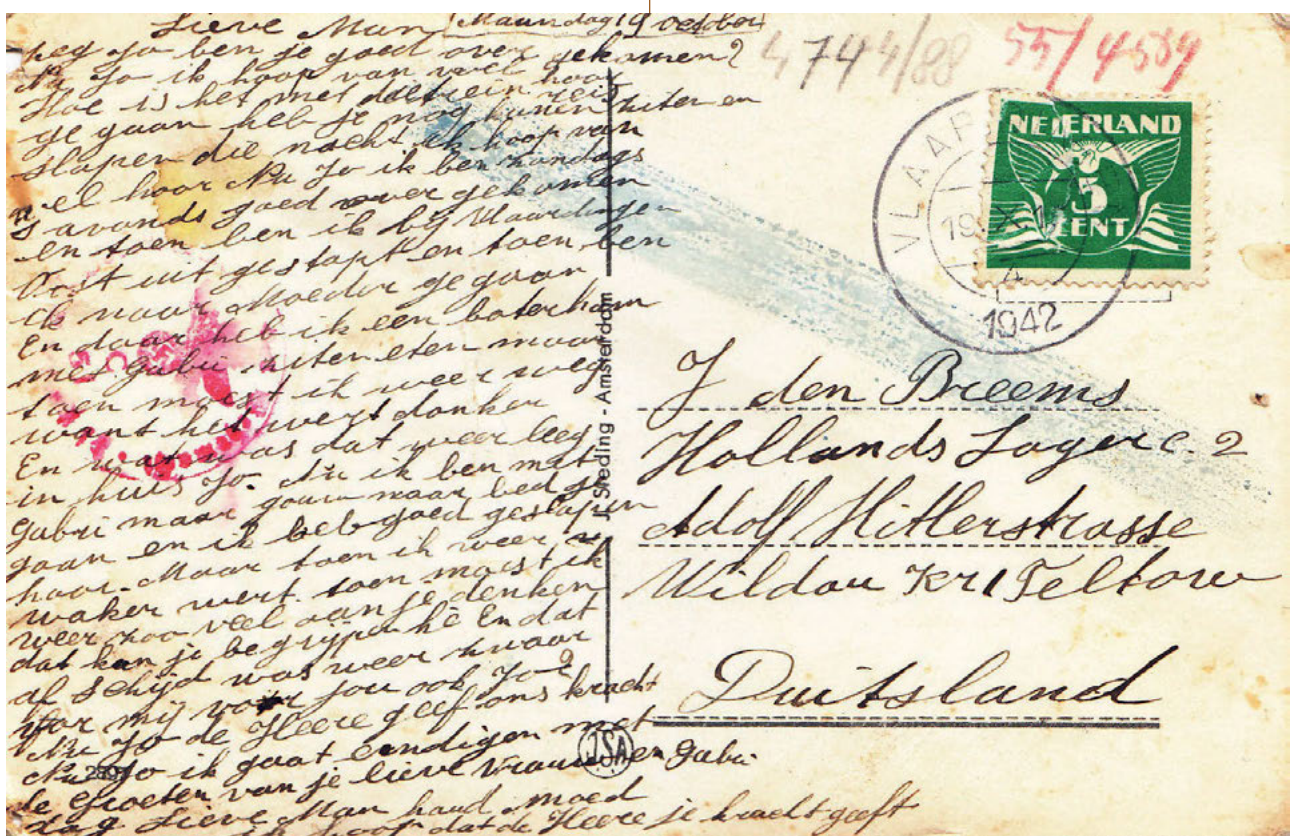 Lieve Man Maandag 19 october
zeg Jo ben je goed over gekomen?
Nu Jo ik hoop van wel hoor
Hoe is het met de trein reis
ge gaan heb je nog kunen ziten en
slapen die nacht ik hoop van
wel hoor Nu Jo ik ben zondags
s avonds goed over gekomen
en toen ben ik bij Vlaardingen
Oost uit gestapt en toen ben
ik naar Moeder ge gaan
En daar heb ik een boterham
met Gabri ziten eten maar
toen moest ik weer weg
want het wert donker
En wat was dat weer leeg
in huis Jo. Nu ik ben met
Gabri maar gouw naar bed ge
gaan en ik heb goed geslapen
hoor. Maar toen ik weer
waker wert toen moest ik
weer zoo veel aan je denken
dat kan je begrijpen hè En dat
af schijd was weer zwaar
voor mij voor jou ook Jo?
Nu Jo de Heere geef ons kracht
Nu Jo ik gaat eendigen met
de Groeten van je lieve Vrouw en Gabri
dag Lieve Man houd moed
ik hoop dat de Heere je kracht geeft
J. Sleding - Amsterdam
JSA
4744/88 55/4589
NEDERLAND
5
CENT
VLAARD
19 X
1942
J den Breems
Hollands Lager c. 2
Adolf Hitlerstrasse
Wildau Kr Teltow
Duitsland